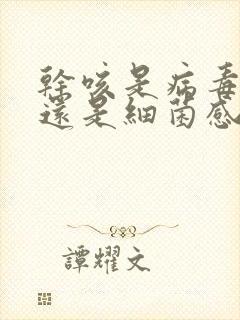 幹咳是病毒
還是細菌感
譚耀文